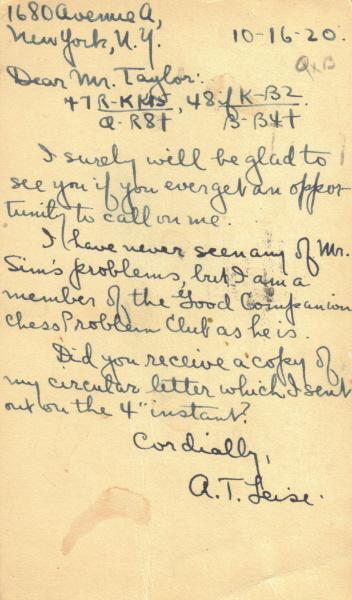 1680 Avenue A,
New York, N.Y. 10-16-20.
QxB
Dear Mr. Taylor:
47 R-KKt5, 48 if K-B2
Q-R8+ B-B4+
I surely will be glad to
see you if you ever get an oppor-
tunity to call on me.
I have never seen any of Mr.
Sim's problems, but I am a
member of the Good Companion
Chess Problem Club as he is.
Did you receive a copy of
my circular letter which I sent
out on the 4" instant?
Cordially,
A.T. Leise.